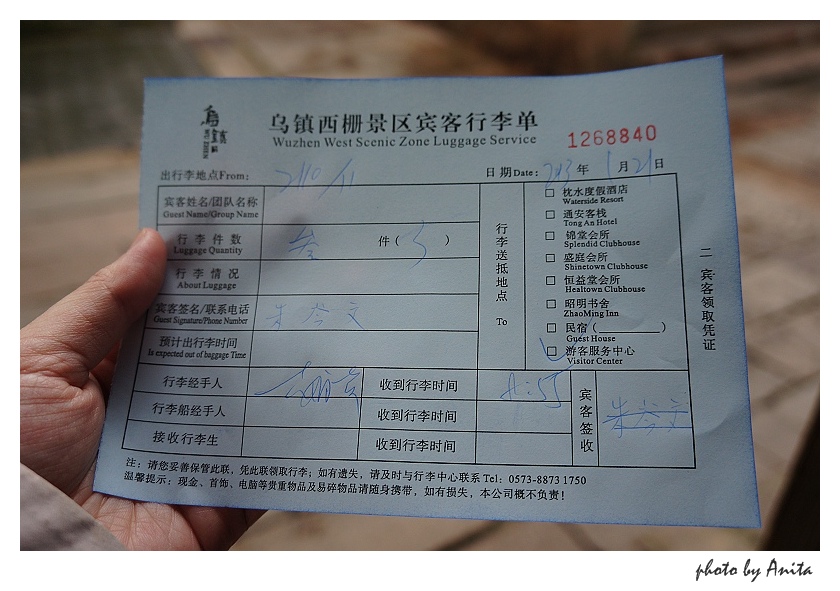 乌镇西栅景区宾客行李单
Wuzhen West Scenic Zone Luggage Service
1268840
WU ZHEN
出行李地点From:
日期Date: 年 1月21日
宾客姓名/团队名称
Guest Name/Group Name
行李件数
Luggage Quantity
叁 件( 3 )
行李情况
About Luggage
宾客签名/联系电话
Guest Signature/Phone Number
预计出行李时间
Is expected out of baggage Time
行李送抵地点
To
□ 枕水度假酒店
Waterside Resort
□ 通安客栈
Tong An Hotel
□ 锦堂会所
Splendid Clubhouse
□ 盛庭会所
Shinetown Clubhouse
□ 恒益堂会所
Healtown Clubhouse
□ 昭明书舍
ZhaoMing Inn
□ 民宿(__________)
Guest House
□ 游客服务中心
Visitor Center
二 宾客领取凭证
行李经手人
收到行李时间
行李船经手人
收到行李时间
接收行李生
收到行李时间
宾客签收
注：请您妥善保管此联，凭此联领取行李；如有遗失，请及时与行李中心联系 Tel：0573-8873 1750
温馨提示：现金、首饰、电脑等贵重物品及易碎物品请随身携带，如有损失，本公司概不负责！
photo by Anita